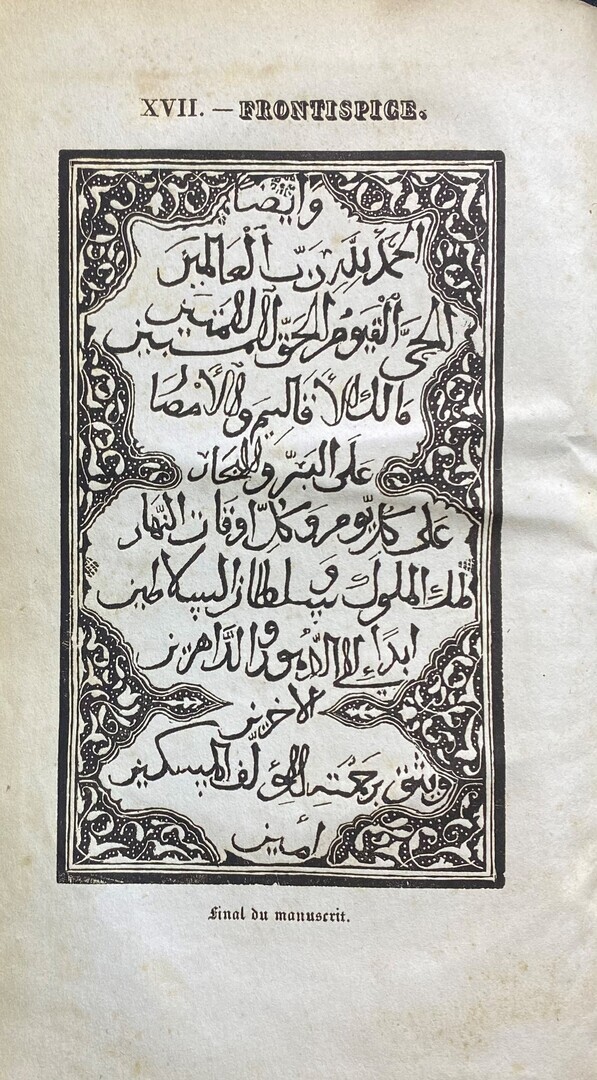 XVII. — FRONTISPICE.
وَايضًا
الحمدُ لِلّٰهِ رَبّ العَالمين
الحَيّ القيوم الحَقّ الامين
مَالك الأقاليم والأمصا
عَلى البَرّ والبحار
عَلى كل يَوم وكلّ اوقات النّهار
ملك الملوك وسلطان السلاطين
ابدًا الى الدّهور والدّاهرين
الاخرين
ويثق برحمته المؤلف المسكين
امين
Final du manuscrit.